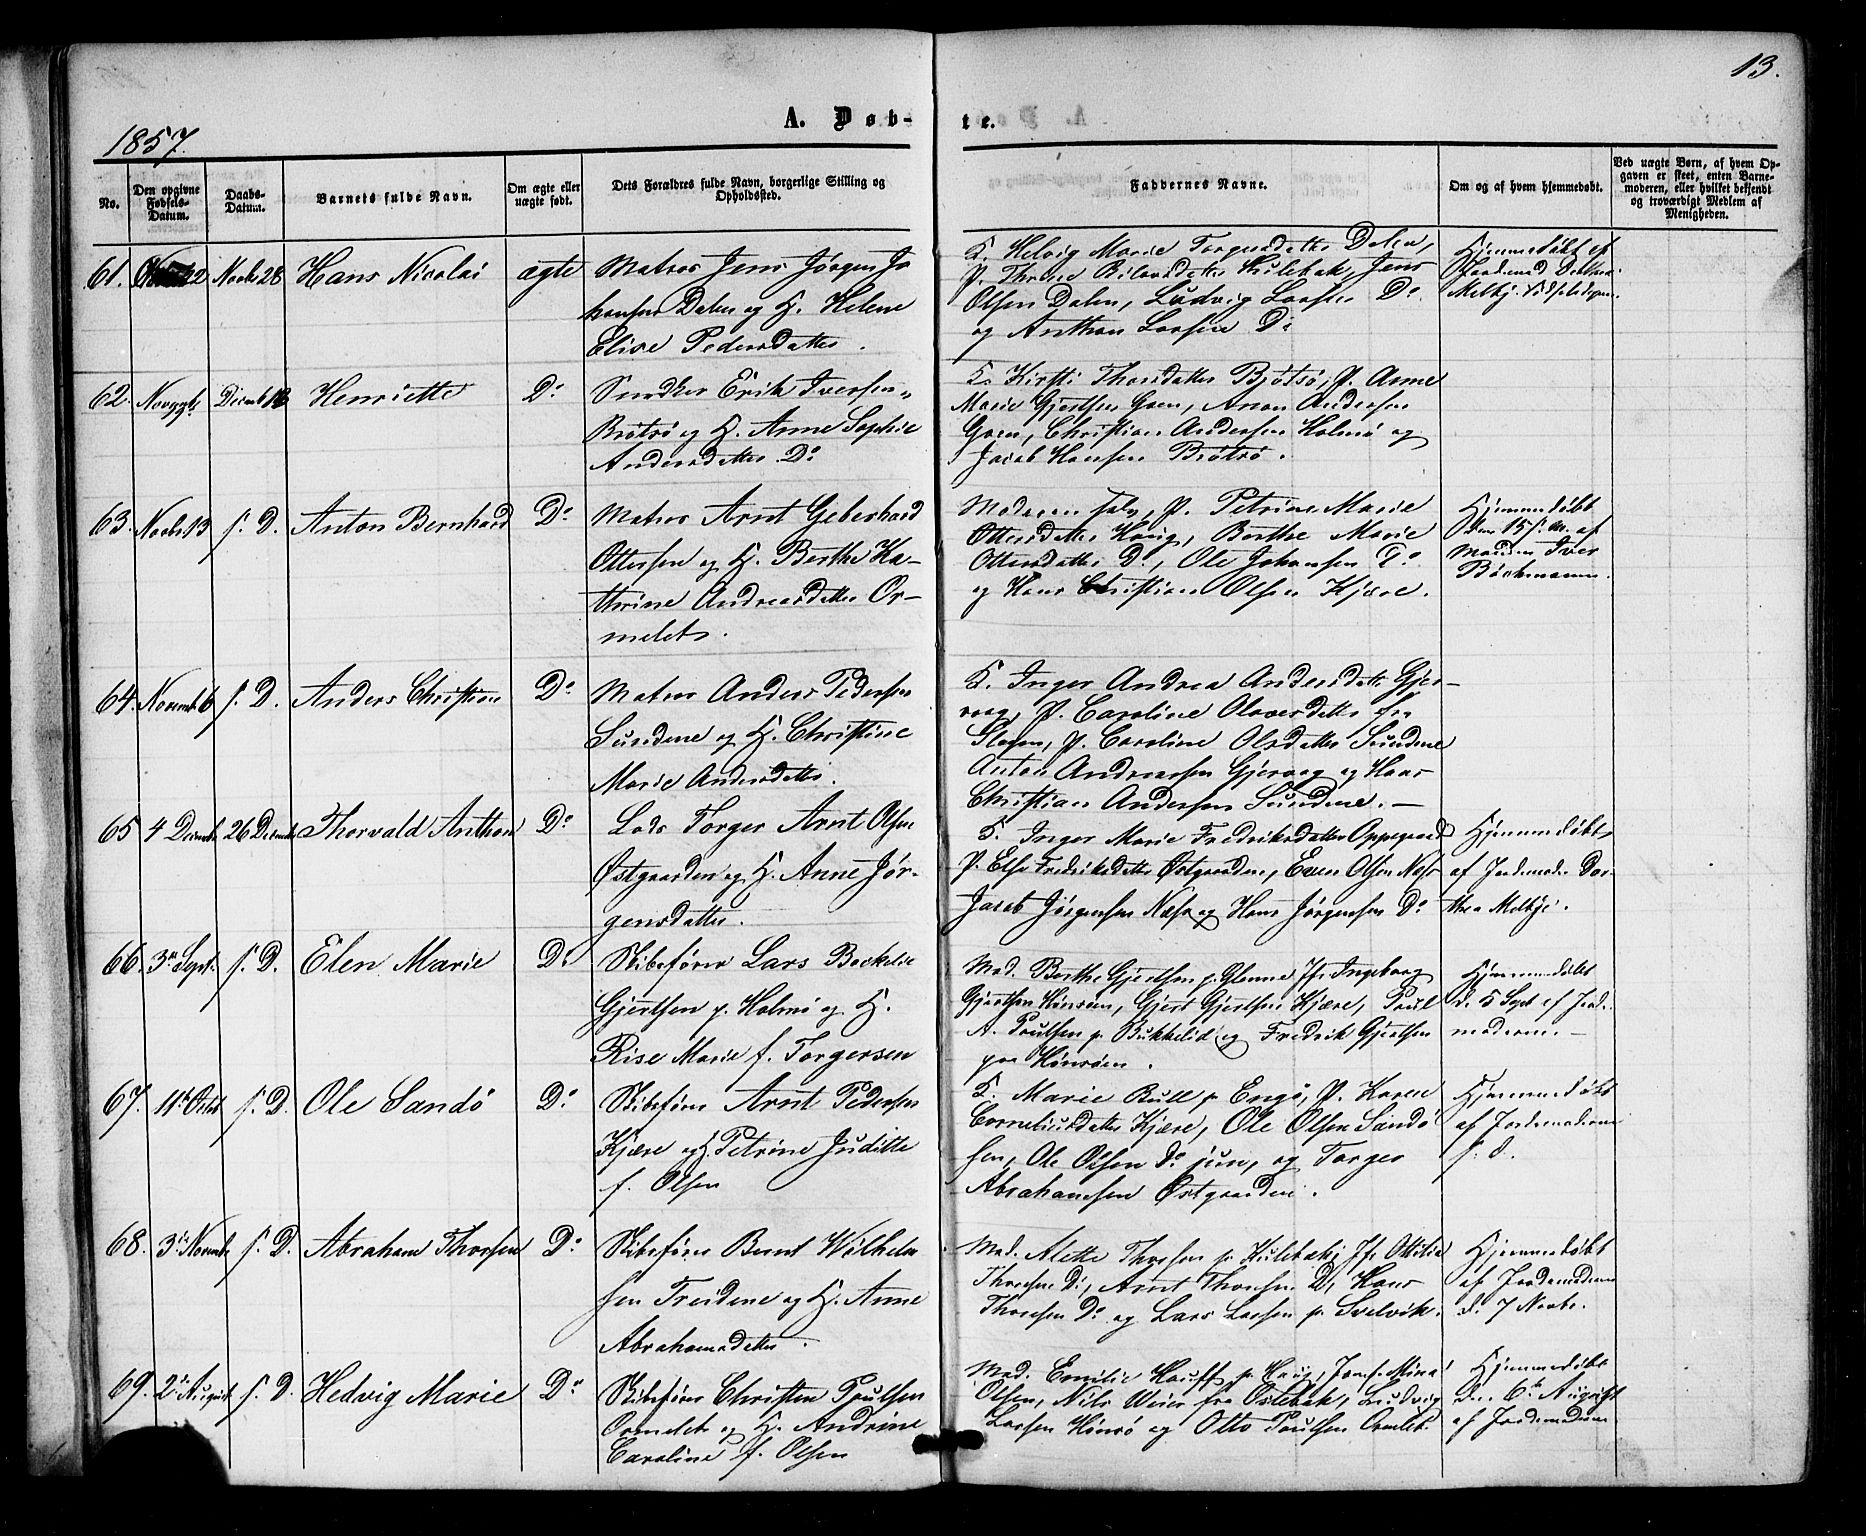 13.
A. Døb-
te.
1857.
No.
Den opgivne
Fødsels-
Datum.
Daabs-
Datum.
Barnets fulde Navn.
Om ægte eller
uægte født.
Dets Forældres fulde Navn, borgerlige Stilling og
Opholdssted.
Faddernes Navne.
Om og af hvem hjemmedøbt.
Ved uægte Børn, af hvem Op-
gaven er skeet, enten Barne-
moderen, eller hvilket bekjendt
og troværdigt Medlem af
Menigheden.
61. 22 Novbr 28 Hans Nicolai ægte Matros Jens Jørgen Jo
hansen Dalen og H. Helene
Elise Pedersdatter.
K. Helvig Marie Dalen,
P. Hulebak, Jens
Olsen Dalen, Ludvig Larsen Do
og Anthon Larsen Do
Hjemmedøbt af
Jordemod
Melbÿ
62. Decemb Henriette Do Snedker Erik Iversen
Brøtsø og H. Anne Sophie
Andersdatter Do
K. Kirsti Brøtsø, P. Anne
Marie Gjertsen Andersen
Christian Andersen Holmø og
Jacob Hansen Brøtsø.
63. Novbr 13 s. D. Anton Bernhard Do Matros Arnt Geberhard
Ottersen og H. Berthe Ka-
thrine Andreasdatter Or-
melet.
Moderen selv, P. Petrine Marie
Ottersdatter Haug, Berthe Marie
Ottersdatter Do, Ole Johansen Do
og Hans Christian Olsen Kjære.
Hjemmedøbt
den 15 s. M. af
Manden Iver
Bachmann.
64. Novemb 6 s. D. Anders Christian Do Matros Anders Pedersen
Sundene og H. Christine
Marie Andersdatter.
K. Inger Andrea Andersdatter Gjer-
vaag, P. Caroline Olavesdatter fra
Slagen, P. Caroline Olsdatter Sundene
Anton Andreassen Gjervaag og Hans
Christian Andersen Sundene.
65 4 Decemb 26 Decemb Thorvald Anthon Do Lods Torger Arnt Olsen
Østgaarden og H. Anne Jør-
gensdatter.
K. Inger Marie Fredriksdatter Oppegaard
P. Else Fredriksdatter Østgaarden, Even Olsen Næs
Jacob Jørgensen Næs og Hans Jørgensen Do
Hjemmedøbt
af Jordemoder Dor-
thea Melbÿe.
66. 3de Sept. s. D. Elen Marie Do Skibsfører Lars Bockelie
Gjertsen p. Holmø og H.
Rise Marie f. Torgersen
Mad. Berthe Gjertsen p. Glenne Jfr. Ingeborg
Gjertsen Hønsøen, Gjert Gjertsen Kjære, Poul
A. Poulsen p. Bukkelid og Fredrik Gjertsen
paa Hønsøen.
Hjemmedøbt
d. 5 Sept af Jorde-
moderen.
67. 11te Octob s. D. Ole Sandö Do Skibsfører Arnt Pedersen
Kjære og H. Petrine Juditte
f. Olsen
K. Marie Bull p. Engø, P. Karen
Corneliusdatter Kjære, Ole Olsen Sandö
sen, Ole Olsen Do jun, og Torger
Abrahamsen Østgaarden.
Hjemmedøbt
af Jordemoderen
s. d.
68. 3de Novemb s. D. Abraham Thorsen Do Skibsfører Bernt Wilhelm
sen Treidene og H. Anne
Abrahamsdatter.
Mad. Alette Thorsen p. Hulebak, Jfr Ottilie
Thorsen Do, Arnt Thorsen Do, Hans
Thorsen Do og Lars Larsen p. Svelvik.
Hjemmedøbt
af Jordemoderen
d. 7 Novbr.
69. 2de August s. D. Hedvig Marie Do Skibsfører Christen Poulsen
Ormelet og H. Andrine
Caroline f. Olsen
Mad. Emilie Hauff p. Haug, Jomf. Mina
Olsen, Nils Weier fra Ostebak, Ludvig
Larsen Hønsø og Otto Poulsen Ormelet.
Hjemmedøbt
den 6te August
af Jordemoderen